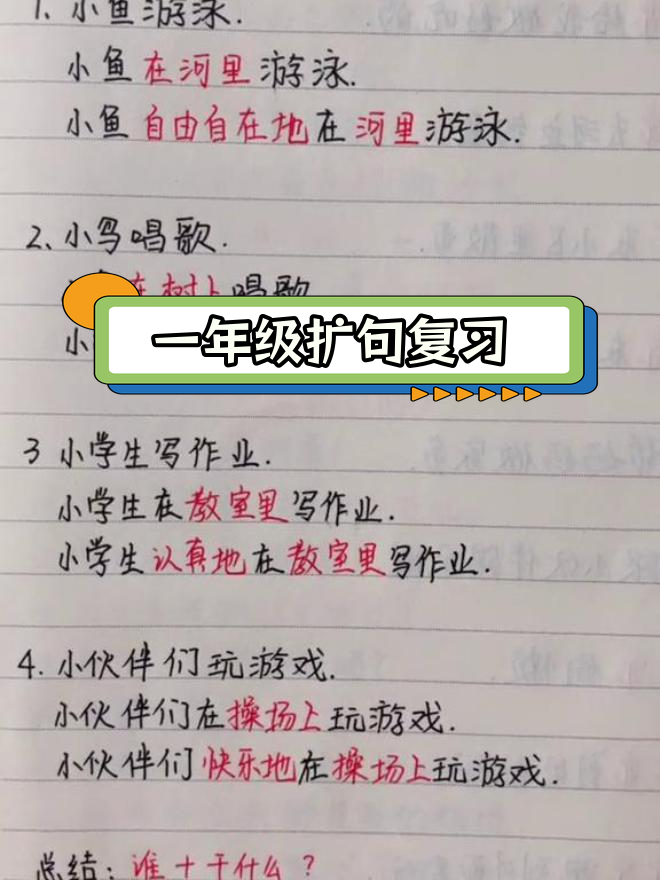 1. 小鱼游泳.
小鱼在河里游泳.
小鱼自由自在地在河里游泳.
2、小鸟唱歌.
在树上唱歌
小
一年级扩句复习
3 小学生写作业.
小学生在教室里写作业.
小学生认真地在教室里写作业.
4. 小伙伴们玩游戏.
小伙伴们在操场上玩游戏.
小伙伴们快乐地在操场上玩游戏.
总结：谁+干什么？